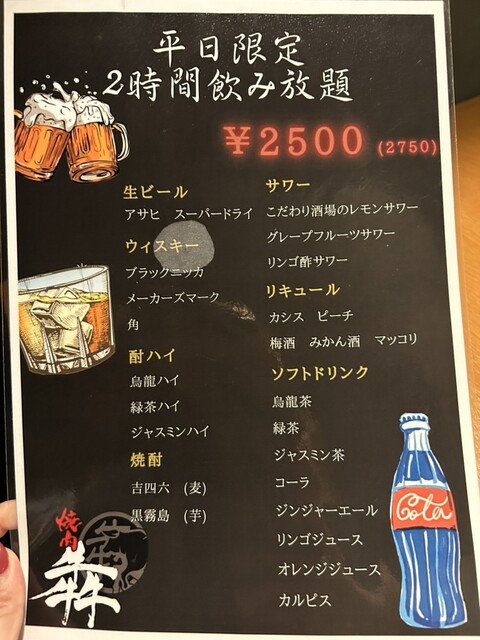 平日限定
2時間飲み放題
¥2500 (2750)
生ビール
アサヒ スーパードライ
ウィスキー
ブラックニッカ
メーカーズマーク
角
酎ハイ
烏龍ハイ
緑茶ハイ
ジャスミンハイ
焼酎
吉四六 (麦)
黒霧島 (芋)
サワー
こだわり酒場のレモンサワー
グレープフルーツサワー
リンゴ酢サワー
リキュール
カシス ピーチ
梅酒 みかん酒 マッコリ
ソフトドリンク
烏龍茶
緑茶
ジャスミン茶
コーラ
ジンジャーエール
リンゴジュース
オレンジジュース
カルピス
Cola
焼肉
犇